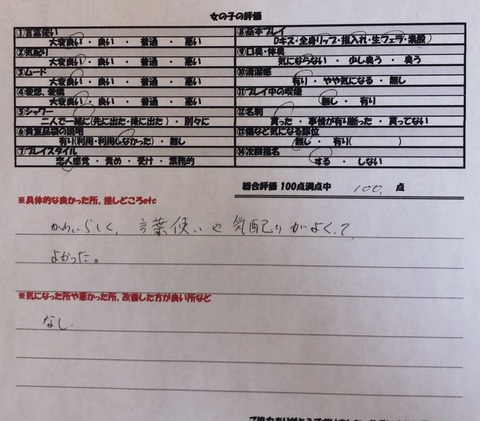 女の子の評価
①言葉使い
大変良い ・ 良い ・ 普通 ・ 悪い
②気配り
大変良い ・ 良い ・ 普通 ・ 悪い
③ムード
大変良い ・ 良い ・ 普通 ・ 悪い
④愛想、愛嬌
大変良い ・ 良い ・ 普通 ・ 悪い
⑤シャワー
二人で一緒に(先に出た・後に出た) ・ 別々に
⑥貴重品袋の説明
有り(利用・利用しなかった) ・ 無し
⑦プレイスタイル
恋人感覚 ・ 責め ・ 受け ・ 業務的
⑧基本プレイ
Dキス・全身リップ・指入れ・生フェラ・素股
⑨口臭・体臭
気にならない ・ 少し臭う ・ 臭う
⑩清潔感
有り ・ やや気になる ・ 無し
⑪プレイ中の喫煙
無し ・ 有り
⑫名刺
貰った ・ 事情が有り断った ・ 貰ってない
⑬傷など気になる部位
無し ・ 有り( )
⑭次回指名
する ・ しない
総合評価 100点満点中 100. 点
※具体的な良かった所、推しどころetc
かわいらしく、言葉使いや気配りがよくって
よかった。
※気になった所や悪かった所、改善した方が良い所など
なし.